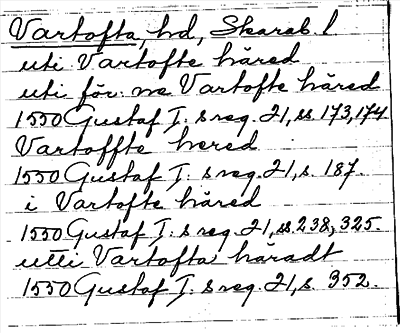 Vartofta, hd, Skarab. l
uti Vartofte häred
uti för:ne Vartofte härad
1550 Gustaf I:s reg. 21, ss. 173, 174
Vartoffte hered
1550 Gustaf I:s reg. 21, s. 187.
i Vartofte häred
1550 Gustaf I:s reg. 21, ss 238, 325.
utti Vartofta häradt
1550 Gustaf I:s reg. 21, s. 352.